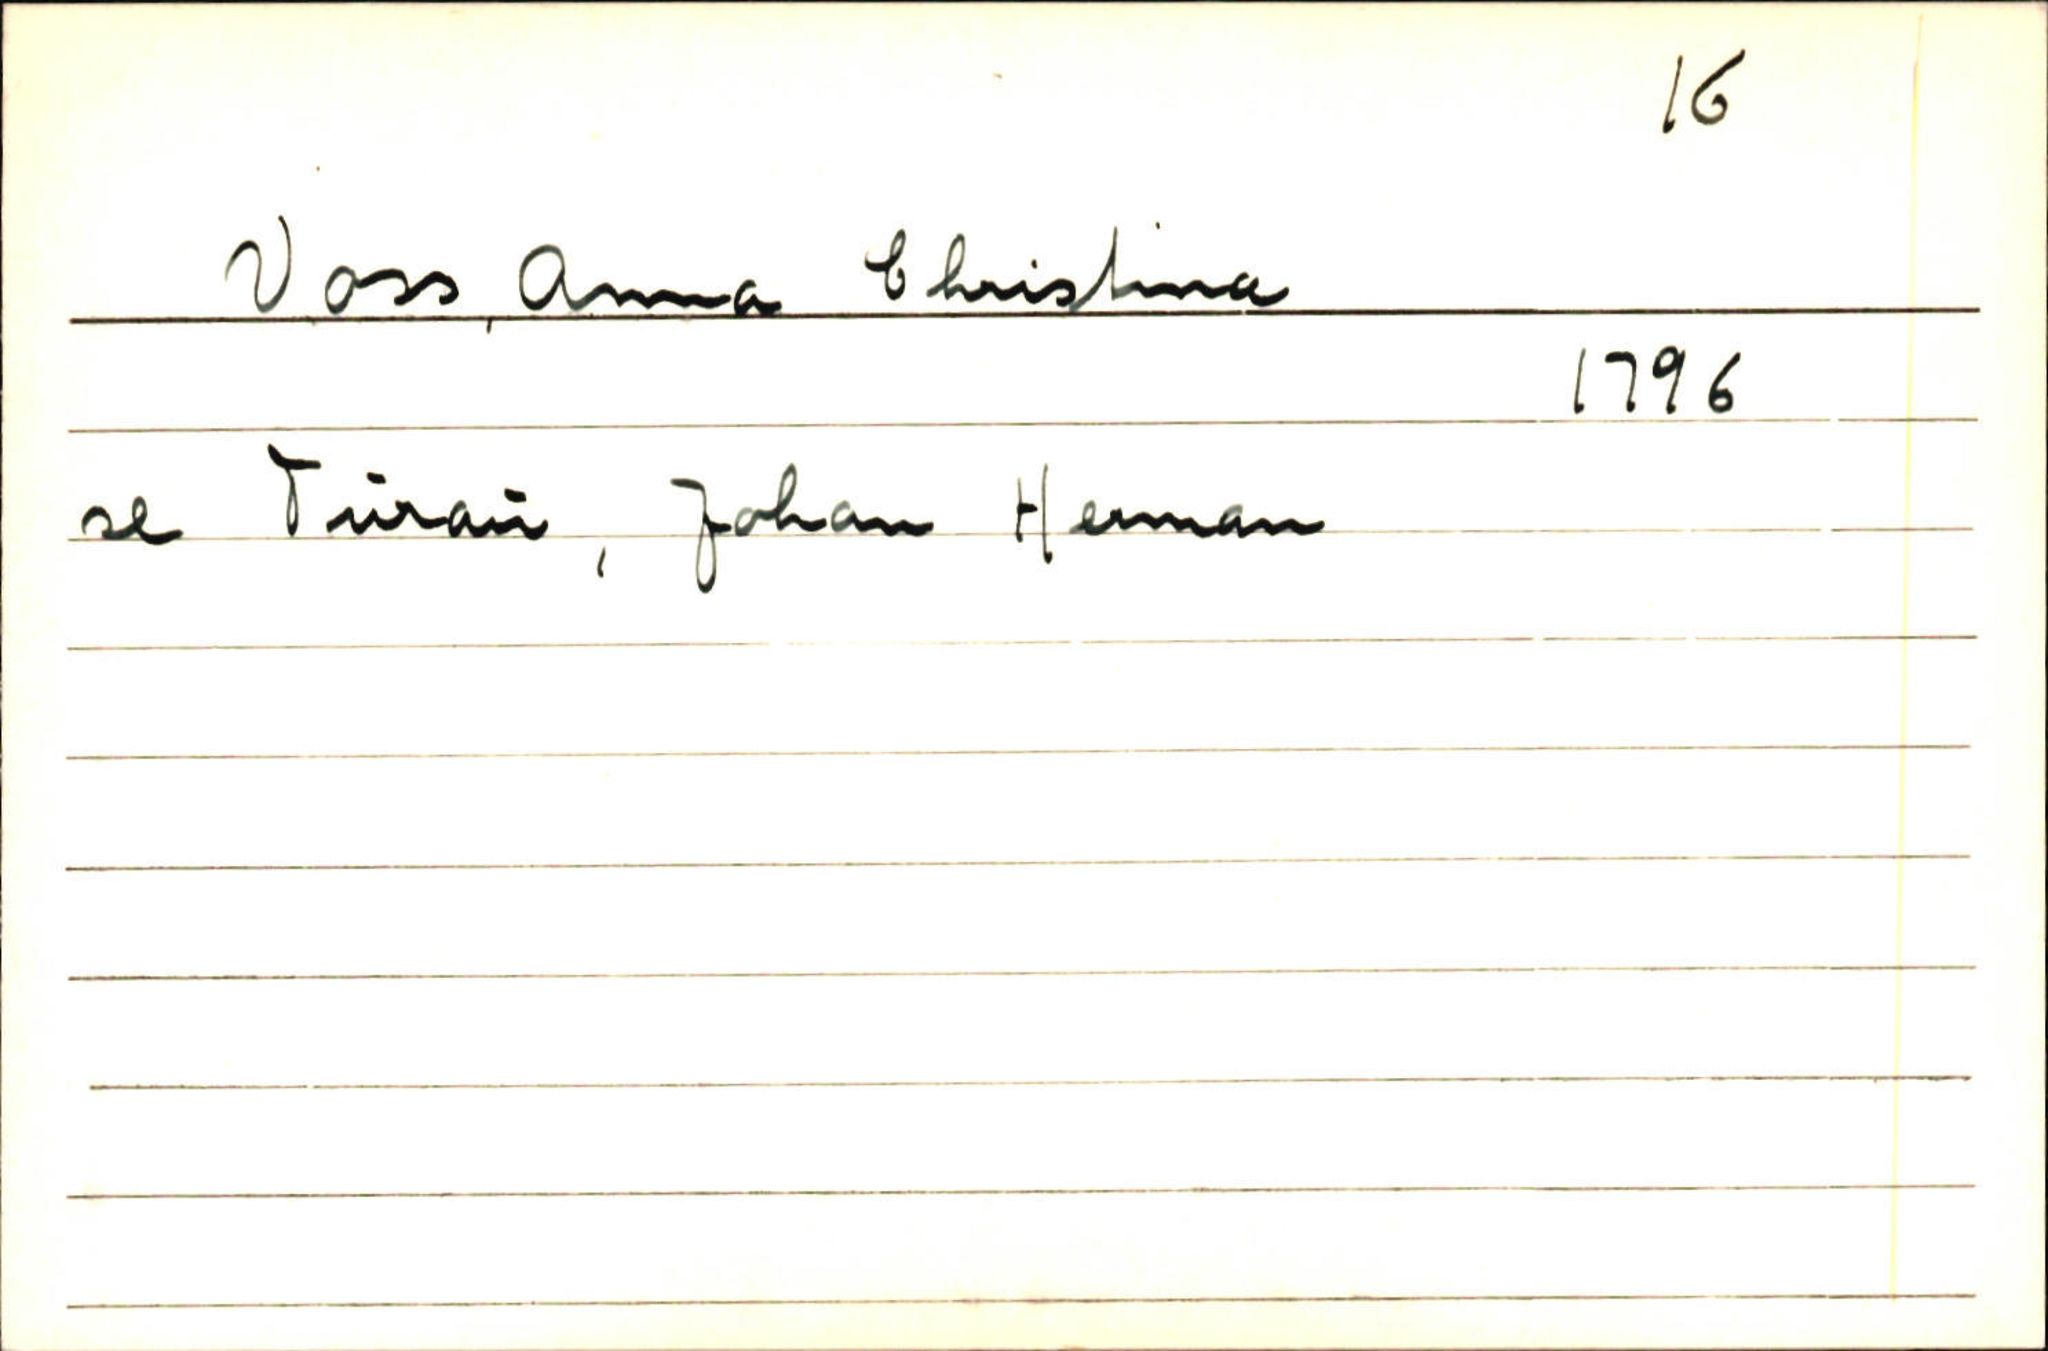 16
Voss, Anna Christina
1796
se Türaü, Johan Herman